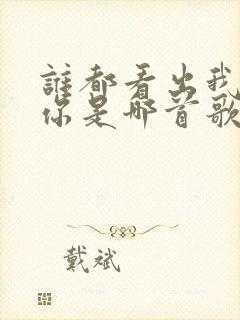 誰都看出我
你是哪首歌
戴斌